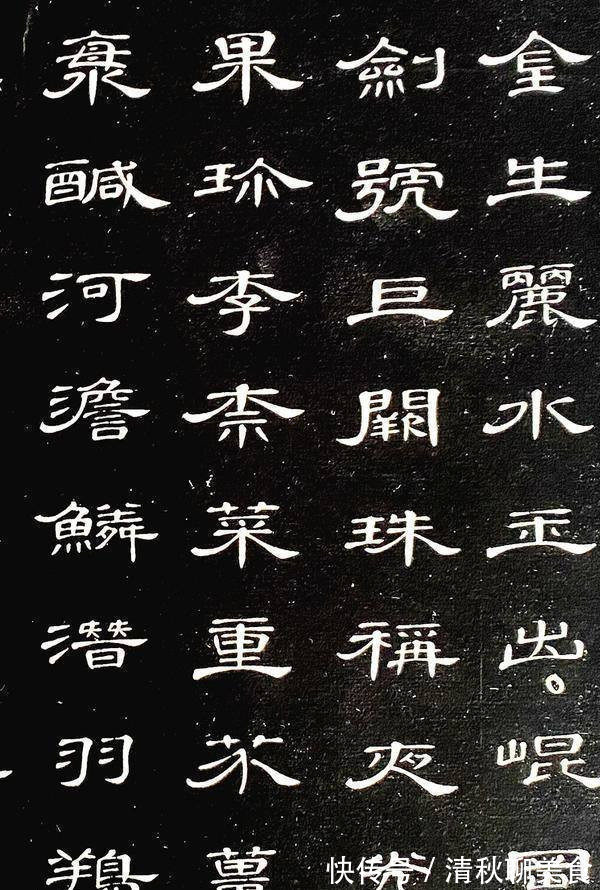 金生麗水玉出崐岡
劍號巨闕珠稱夜光
果珍李柰菜重芥薑
海鹹河澹鱗潛羽翔
快传号 / 清秋聊美食